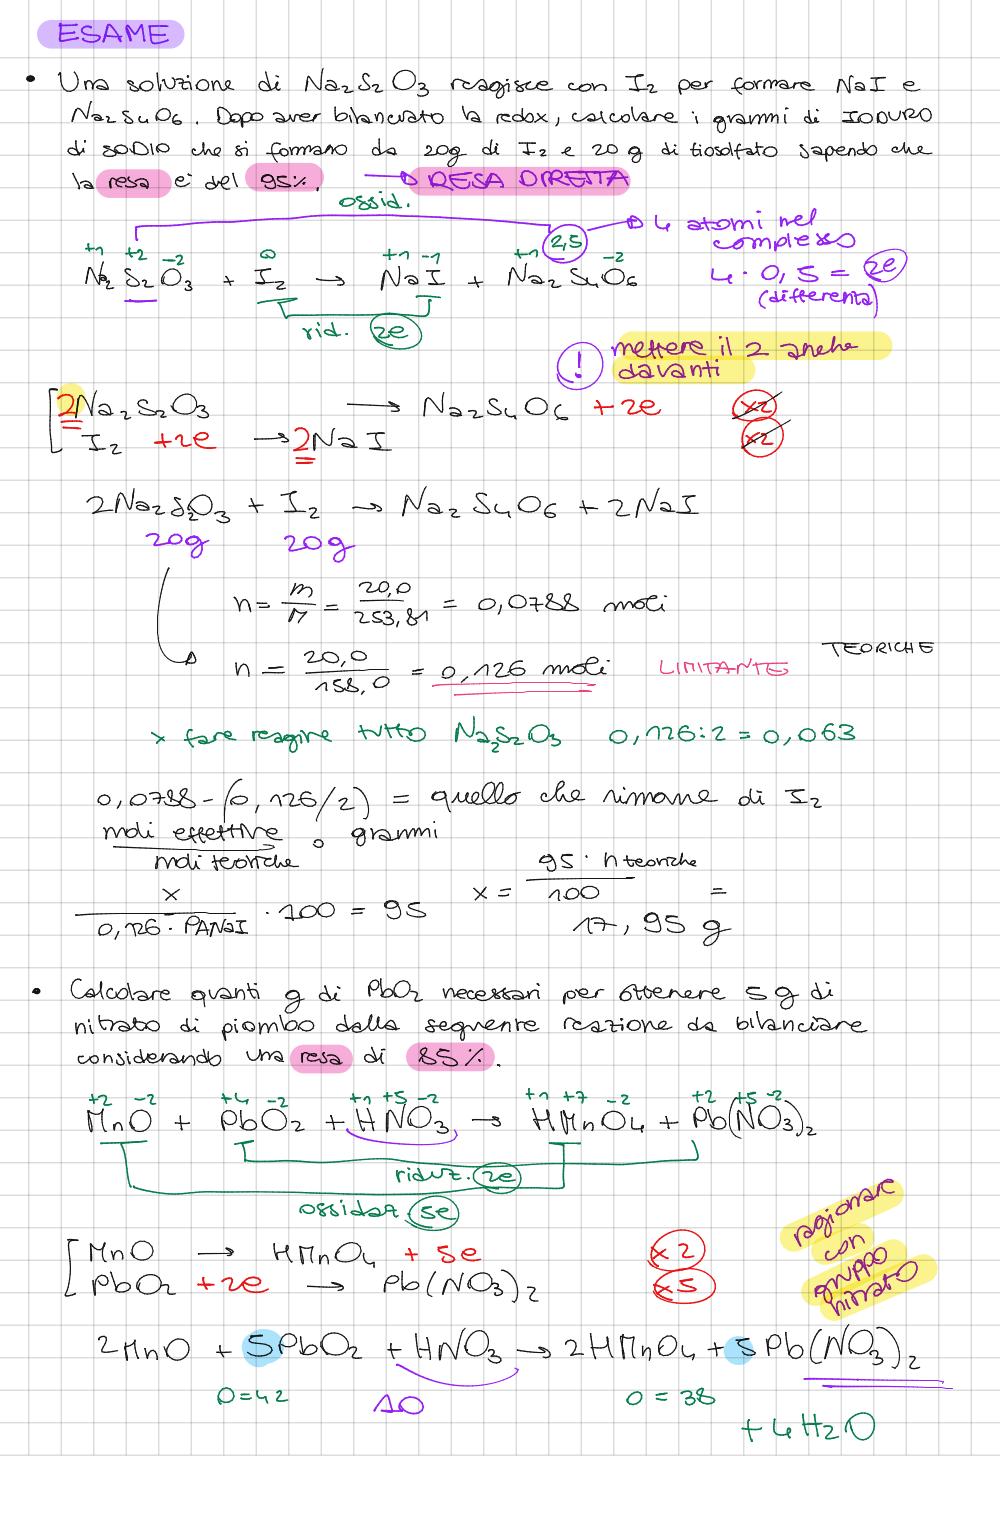 ESAME
• Una soluzione di Na2S2O3 reagisce con I2 per formare NaI e
Na2S4O6. Dopo aver bilanciato la redox, calcolare i grammi di IODURO
di SODIO che si formano da 20g di I2 e 20 g di tiosolfato sapendo che
la resa è del 95%. → RESA DIRETTA
ossid.
+1 +2 -2 0 +1 -1 +1 2,5 -2 → 4 atomi nel
complesso
Na2 S2O3 + I2 → NaI + Na2S4O6 4 · 0,5 = 2e
(differenza)
rid. 2e
! mettere il 2 anche
davanti
2Na2S2O3 → Na2S4O6 + 2e x2
I2 +2e → 2NaI x2
2Na2S2O3 + I2 → Na2S4O6 + 2NaI
20g 20g
n = m/M = 20,0/253,81 = 0,0788 moli
TEORICHE
n = 20,0/158,0 = 0,126 moli LIMITANTE
x fare reagire tutto Na2S2O3 0,126:2 = 0,063
0,0788 - (0,126/2) = quello che rimane di I2
moli effettive o grammi
moli teoriche
x/0,126 · PANaI · 100 = 95 x = 95 · n teoriche/100 =
17,95 g
• Calcolare quanti g di PbO2 necessari per ottenere 5 g di
nitrato di piombo dalla seguente reazione da bilanciare
considerando una resa di 85%.
+2 -2 +4 -2 +1 +5 -2 +1 +7 -2 +2 +5 -2
MnO + PbO2 + HNO3 → HMnO4 + Pb(NO3)2
riduz. 2e
ossidaz. 5e
MnO → HMnO4 + 5e x2
PbO2 +2e → Pb(NO3)2 x5
ragionare
con
gruppo
nitrato
2MnO + 5PbO2 + HNO3 → 2HMnO4 + 5Pb(NO3)2
O=42 10 O = 38
+ 4H2O